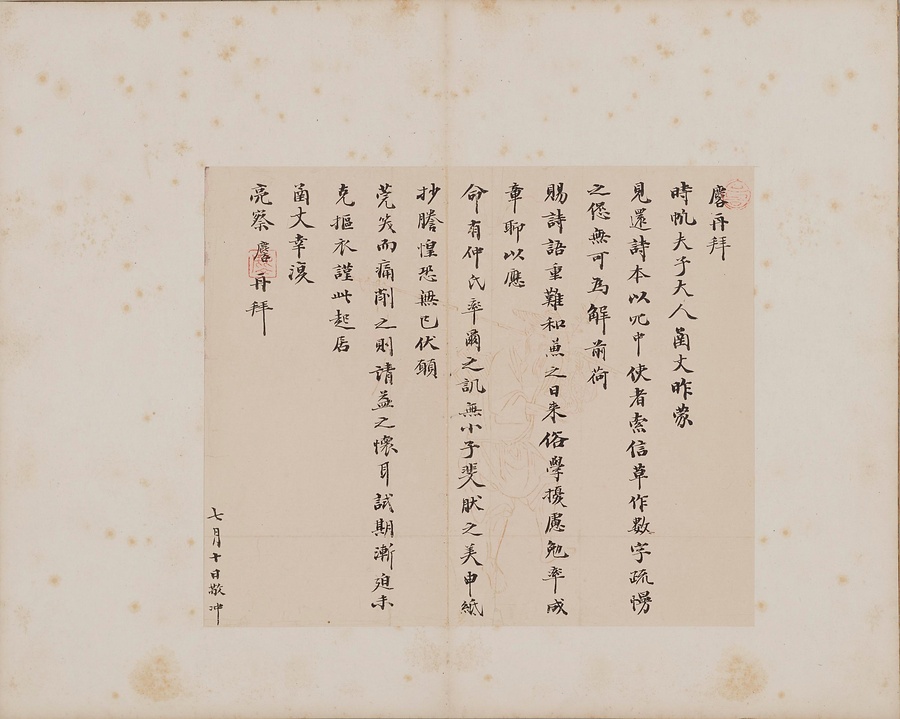 再拜
時帆夫子大人函丈昨蒙
見還詩本以冗中使者索信草作数字疏慢
之愆無可為解前荷
賜詩語重難和兼之日来俗學擾慮勉率成
章聊以應
命有仲氏率爾之譏無小子斐肰之美申紙
抄謄惶恐無已伏願
莞笑而痛削之則請益之懷耳試期漸迫未
克摳衣謹此起居
函丈幸涘
亮察 再拜
七月十日敬冲